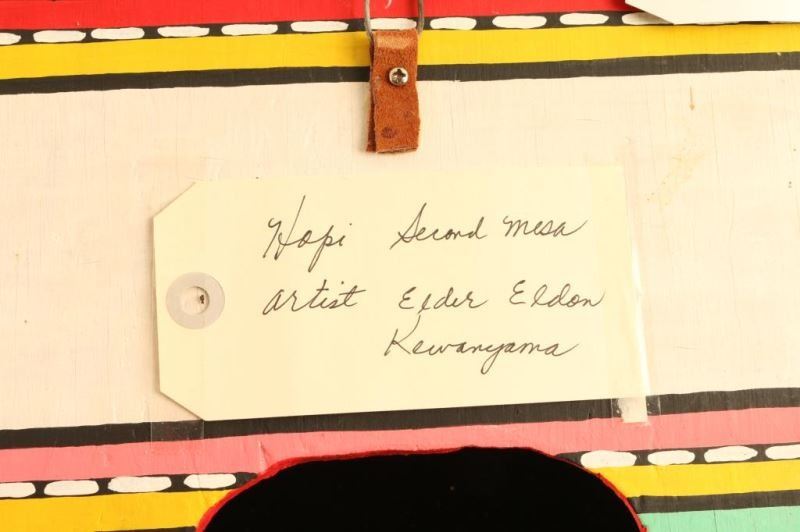 Hopi Second Mesa
artist Elder Eldon
Kewanyama